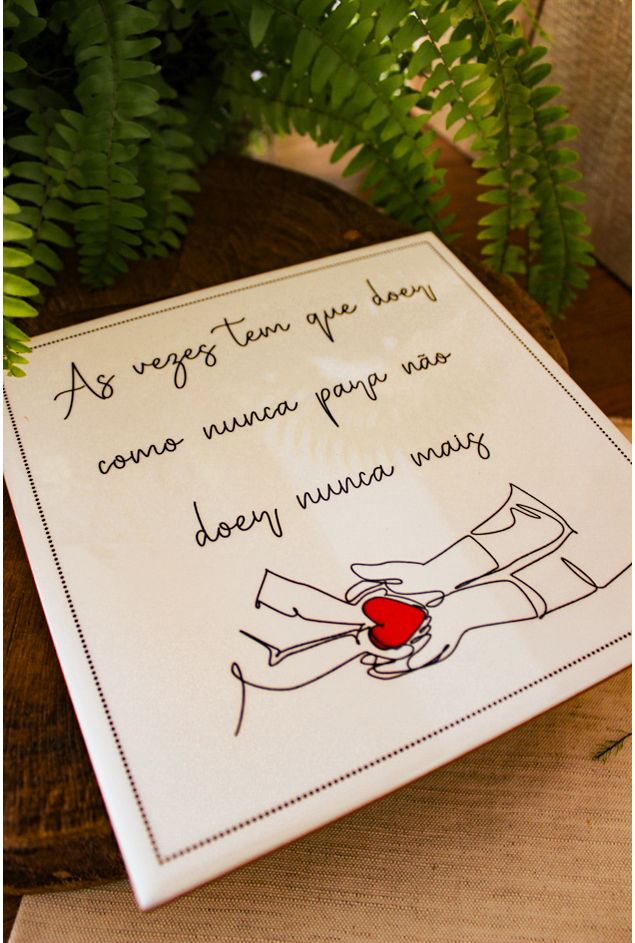 As vezes tem que doer
como nunca para não
doer nunca mais